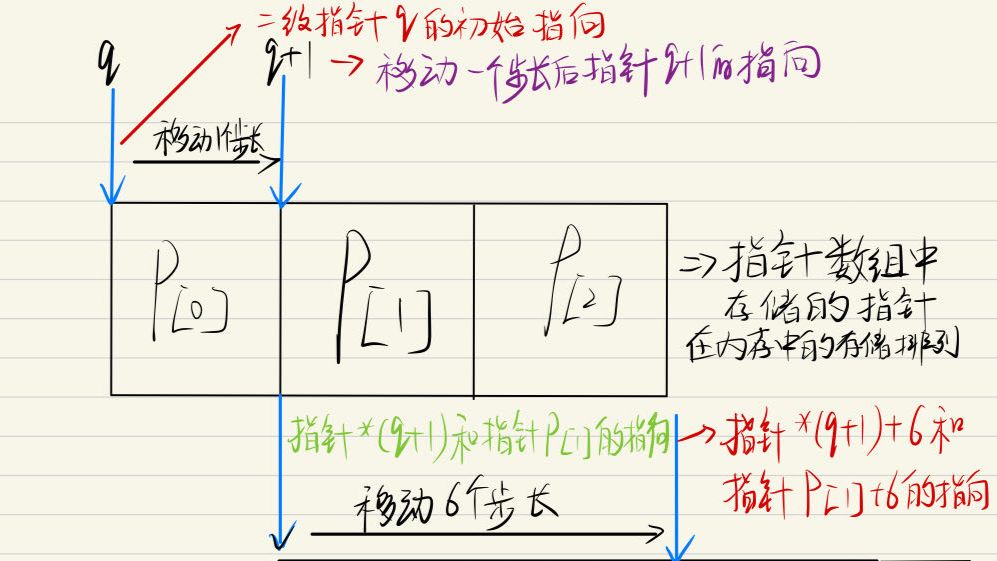 二级指针q的初始指向
q
q+1 → 移动一个步长后指针q+1的指向
移动1个步长
P[0]
P[1]
P[2]
⇒ 指针数组中
存储的指针
在内存中的存储排列
指针*(q+1)和指针P[1]的指向
→ 指针*(q+1)+6和
指针P[1]+6的指向
移动6个步长